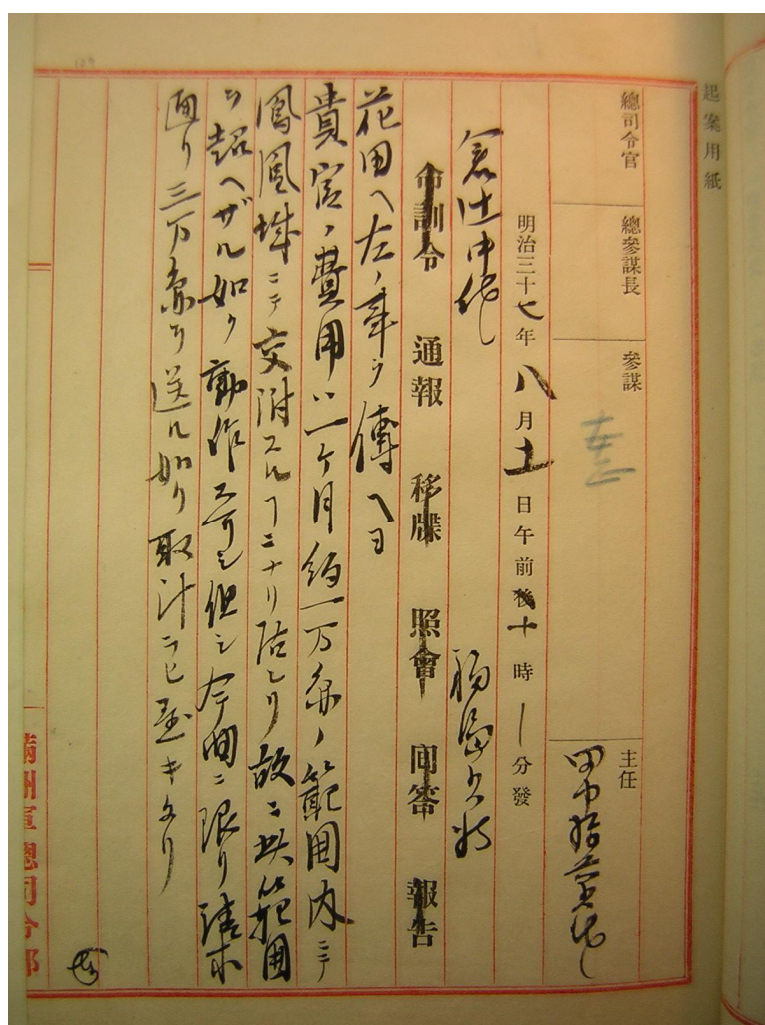 起案用紙
總司令官
總參謀長
參謀
主任
田中
明治三十七年八月十一日午前十時一分發
福島少將
倉辻中佐
命訓令 通報 移牒 照會 回答 報告
花田へ左ノ事ヲ傳ヘヨ
貴官ノ費用ハ一ヶ月約一万弗ノ範囲内ニテ
鳳凰城ニテ交附スルヿニナリ居レリ故ニ此範囲
ヲ超ヘザル如ク動作スベシ但シ今回ニ限リ請求
通リ三万弗ヲ送ル如ク取計ヒ置キタリ
滿洲軍總司令部